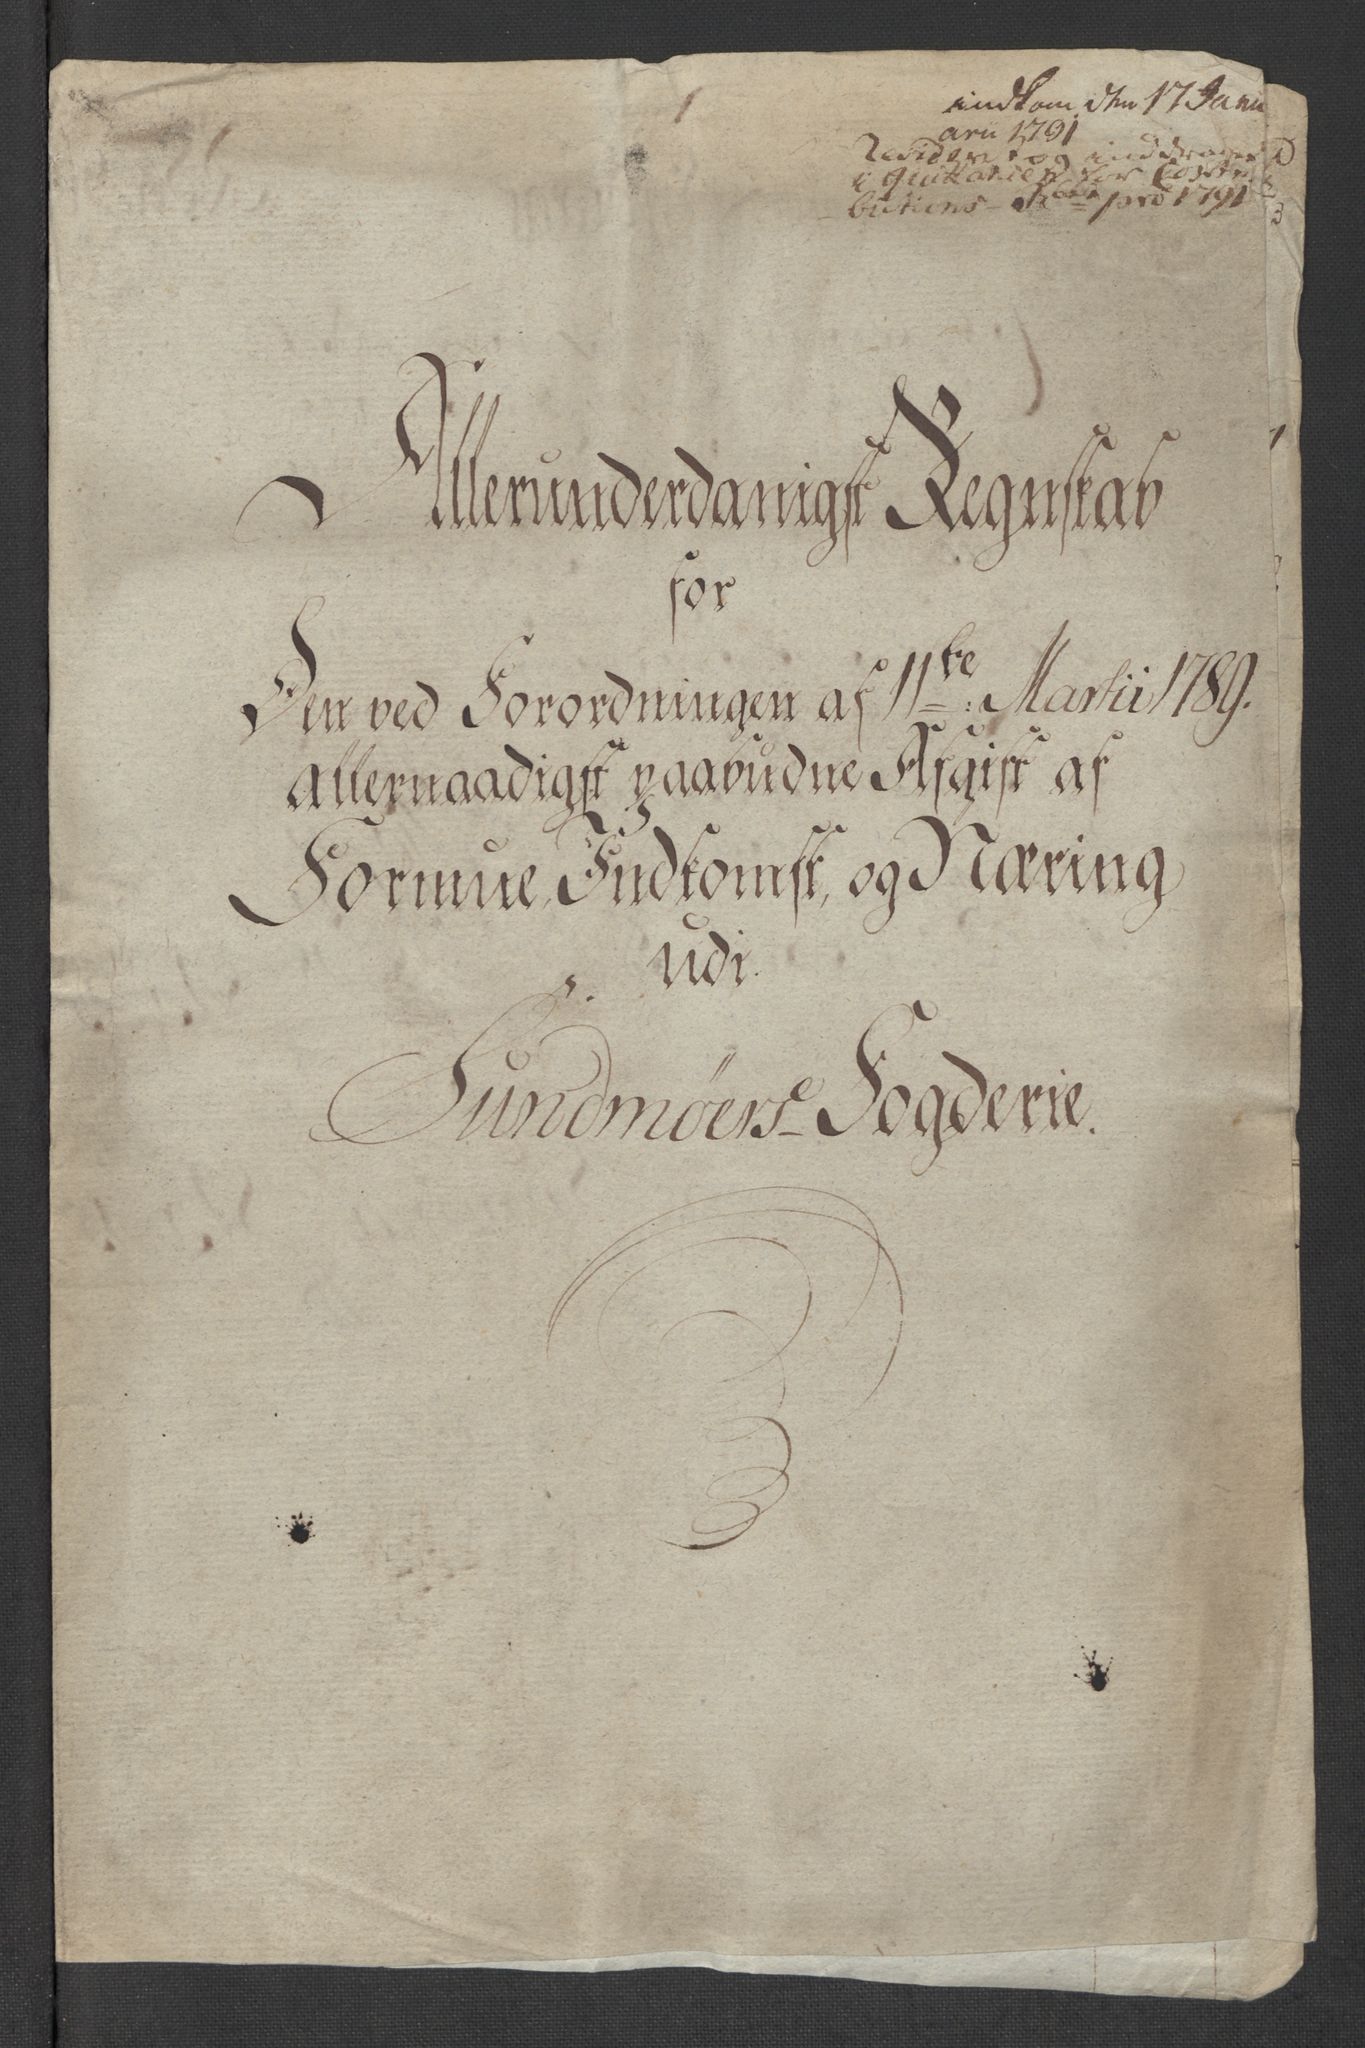 indkom den 17 Janu
arii 1791
Revideret og inddraget
i Quittancen for Contri
butions- pro 1791
Allerunderdanigst Regnskab
for
Den ved Forordningen af 11te: Martii 1789.
allernaadigst paabudne Afgift af
Formue, Indkomst, og Næring
udi
Sundmöers Fogderie.